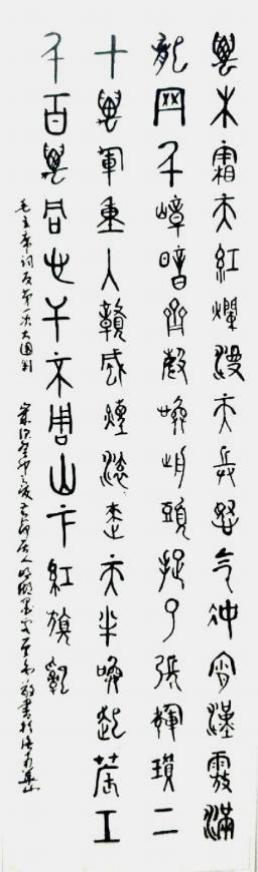 萬木霜天紅爛漫天兵怒气沖宵漢霧滿
龍岡千嶂暗齊聲喚前頭捉了張輝瓚二
十萬軍重入贛風煙滾滾來天半喚起農工
千百萬同心干不周山下紅旗亂
毛主席詞反第一次大圍剿